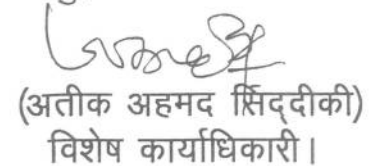 (अतीक अहमद सिद्दीकी)
विशेष कार्याधिकारी।